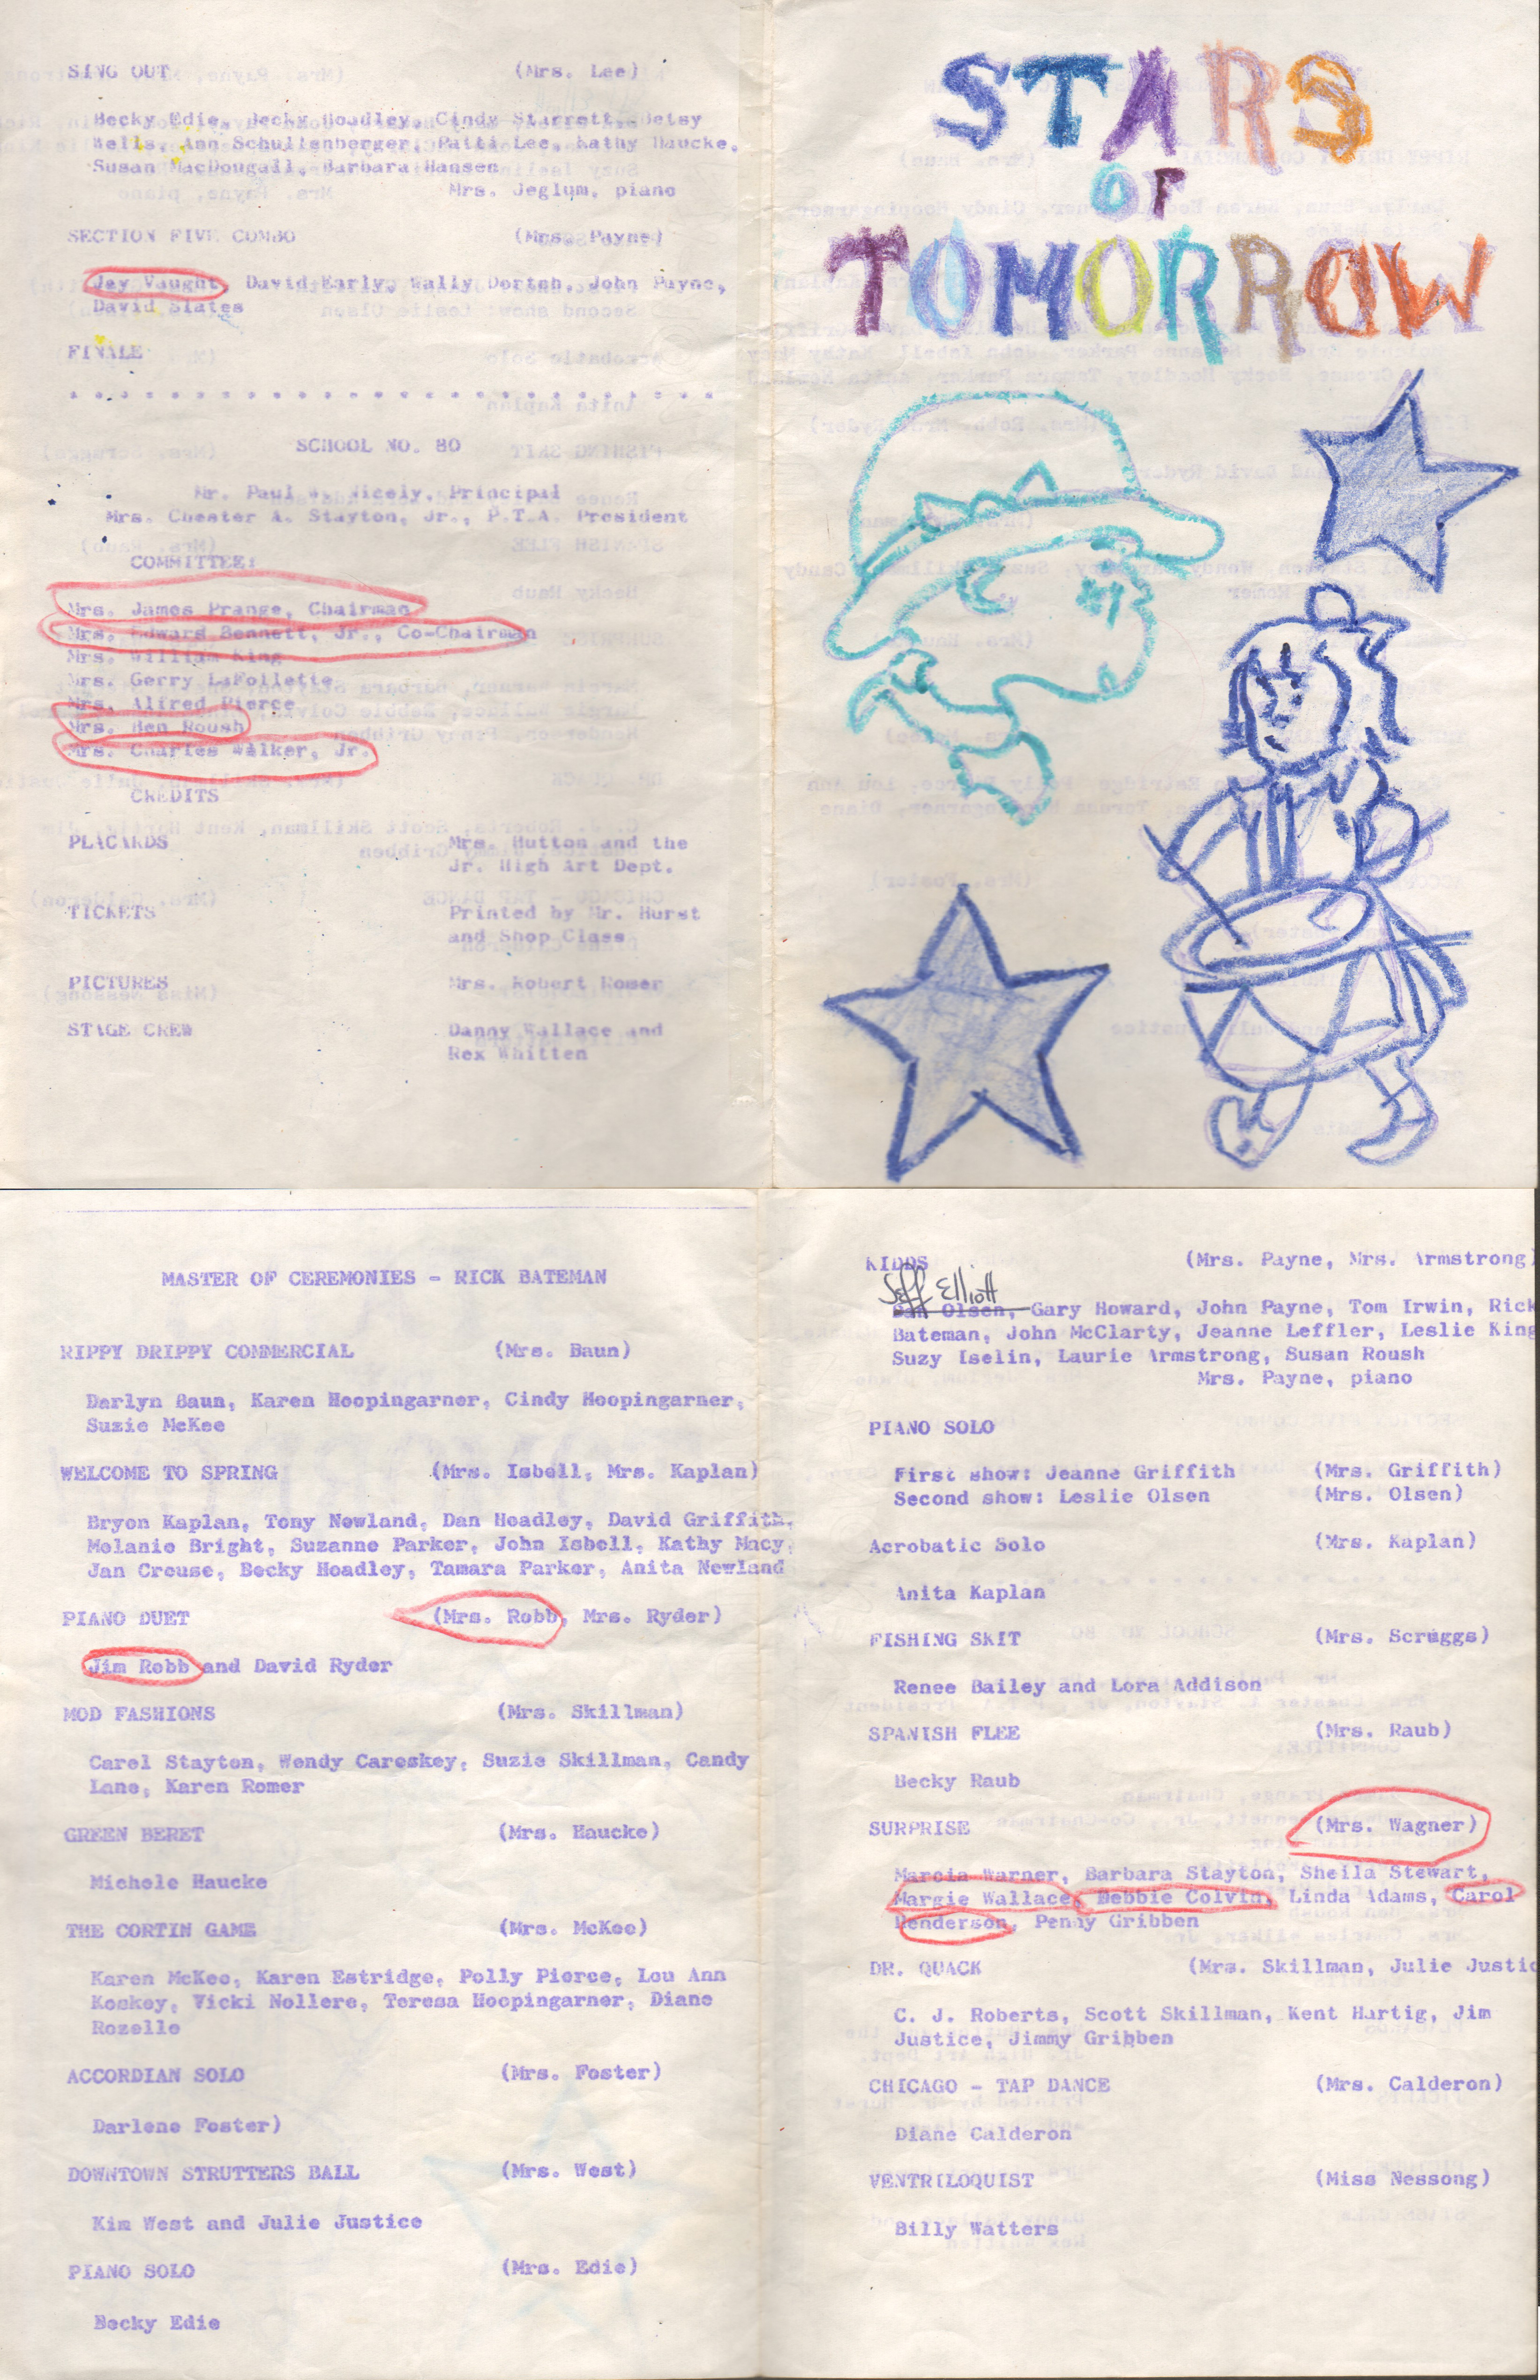 SING OUT (Mrs. Lee)
Becky Edie, Becky Hoadley, Cindy Starrett, Betsy
Wells, Ann Schullenberger, Patti Lee, Kathy Haucke,
Susan MacDougall, Barbara Hansen
Mrs. Jeglum, piano
SECTION FIVE COMBO (Mrs. Payne)
Jay Vaught, David Early, Wally Dortch, John Payne,
David Slates
FINALE
SCHOOL NO. 80
Mr. Paul W. Nicely, Principal
Mrs. Chester A. Stayton, Jr., P.T.A. President
COMMITTEE:
Mrs. James Prange, Chairman
Mrs. Edward Bennett, Jr., Co-Chairman
Mrs. William King
Mrs. Gerry LaFollette
Mrs. Alfred Pierce
Mrs. Ben Roush
Mrs. Charles Walker, Jr.
CREDITS
PLACARDS Mrs. Hutton and the
Jr. High Art Dept.
TICKETS Printed by Mr. Hurst
and Shop Class
PICTURES Mrs. Robert Romer
STAGE CREW Danny Wallace and
Rex Whitten
STARS
OF
TOMORROW
MASTER OF CEREMONIES - RICK BATEMAN
RIPPY DRIPPY COMMERCIAL (Mrs. Baun)
Darlyn Baun, Karen Hoopingarner, Cindy Hoopingarner,
Suzie McKee
WELCOME TO SPRING (Mrs. Isbell, Mrs. Kaplan)
Bryon Kaplan, Tony Newland, Dan Hoadley, David Griffith,
Melanie Bright, Suzanne Parker, John Isbell, Kathy Macy,
Jan Crouse, Becky Hoadley, Tamara Parker, Anita Newland
PIANO DUET (Mrs. Robb, Mrs. Ryder)
Jim Robb and David Ryder
MOD FASHIONS (Mrs. Skillman)
Carol Stayton, Wendy Careskey, Suzie Skillman, Candy
Lane, Karen Romer
GREEN BERET (Mrs. Haucke)
Michele Haucke
THE CORTIN GAME (Mrs. McKee)
Karen McKee, Karen Estridge, Polly Pierce, Lou Ann
Koskey, Vicki Nollere, Teresa Hoopingarner, Diane
Rozelle
ACCORDIAN SOLO (Mrs. Foster)
Darlene Foster)
DOWNTOWN STRUTTERS BALL (Mrs. West)
Kim West and Julie Justice
PIANO SOLO (Mrs. Edie)
Becky Edie
KIDDS (Mrs. Payne, Mrs. Armstrong)
Jeff Elliott
Dan Olsen, Gary Howard, John Payne, Tom Irwin, Rick
Bateman, John McClarty, Jeanne Leffler, Leslie King
Suzy Iselin, Laurie Armstrong, Susan Roush
Mrs. Payne, piano
PIANO SOLO
First show: Jeanne Griffith (Mrs. Griffith)
Second show: Leslie Olsen (Mrs. Olsen)
Acrobatic Solo (Mrs. Kaplan)
Anita Kaplan
FISHING SKIT (Mrs. Scruggs)
Renee Bailey and Lora Addison
SPANISH FLEE (Mrs. Raub)
Becky Raub
SURPRISE (Mrs. Wagner)
Marcia Warner, Barbara Stayton, Sheila Stewart,
Margie Wallace, Debbie Colvin, Linda Adams, Carol
Henderson, Penny Gribben
DR. QUACK (Mrs. Skillman, Julie Justic
C. J. Roberts, Scott Skillman, Kent Hartig, Jim
Justice, Jimmy Gribben
CHICAGO - TAP DANCE (Mrs. Calderon)
Diane Calderon
VENTRILOQUIST (Miss Nessong)
Billy Watters